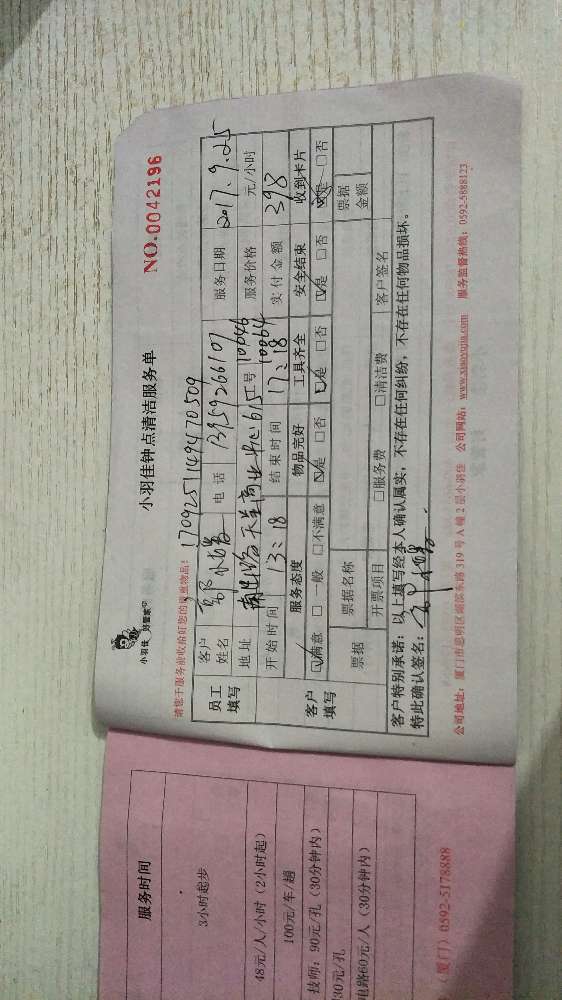 小羽佳
好管家
小羽佳钟点清洁服务单
NO.0042196
请您于服务前收拾好您的贵重物品!
170925149470509
员工填写
客户姓名
电话 13959266107
服务日期 2017.9.25
地址
615
工号 10646
10064
服务价格 元/小时
开始时间 13:18
结束时间 17:18
实付金额 398
客户填写
服务态度 物品完好 工具齐全 安全结束 收到卡片
☑满意 □一般 □不满意 ☑是 □否 ☑是 □否 ☑是 □否 ☑是 □否
票据 票据名称 票据金额
开票项目 □服务费 □清洁费 客户签名
客户特别承诺:以上填写经本人确认属实,不存在任何纠纷,不存在任何物品损坏。
特此确认签名:
公司地址:厦门市思明区湖滨东路319号A幢2层小羽佳 公司网站:www.xiaoyujia.com 服务监督热线:0592-5888123
服务时间
3小时起步
48元/人/小时(2小时起)
100元/车/趟
技师:90元/孔(30分钟内)
30元/孔
电路60元/人(30分钟内)
(厦门)0592-5178888